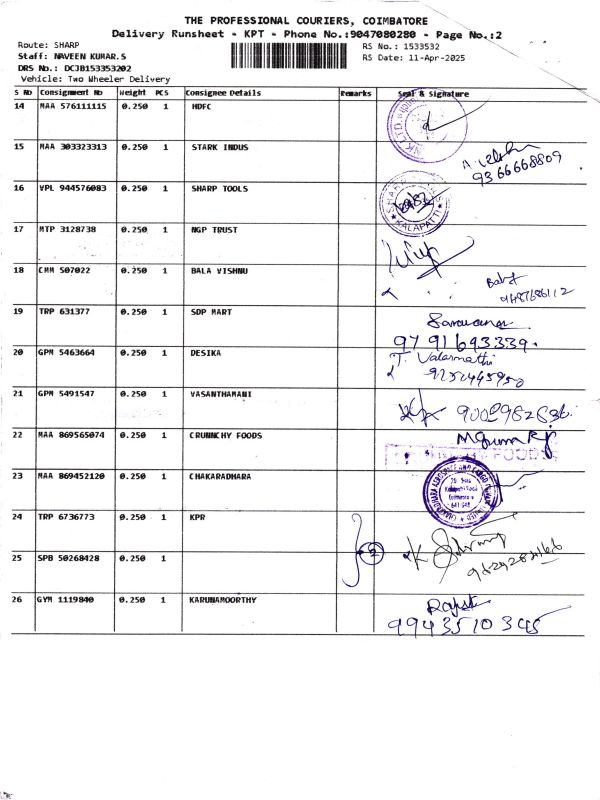 THE PROFESSIONAL COURIERS, COIMBATORE
Delivery Runsheet - KPT - Phone No.:9047080280 - Page No.:2
Route: SHARP
Staff: NAVEEN KUMAR.S
DRS No.: DCJB153353202
Vehicle: Two Wheeler Delivery
RS No.: 1533532
RS Date: 11-Apr-2025
S No Consignment No Weight PCS Consignee Details Remarks Seal & Signature
14 MAA 576111115 0.250 1 HDFC
15 MAA 303323313 0.250 1 STARK INDUS
9366668809
16 VPL 944576083 0.250 1 SHARP TOOLS
KALAPATTI
17 MTP 3128738 0.250 1 NGP TRUST
18 CMM 507022 0.250 1 BALA VISHNU
9487686112
19 TRP 631377 0.250 1 SDP MART
Saravana
9791693339.
20 GPM 5463664 0.250 1 DESIKA
T. Valarmathi
9252445950
21 GPM 5491547 0.250 1 VASANTHAMANI
22 MAA 869565074 0.250 1 CRUNNCHY FOODS
FOODS
23 MAA 869452120 0.250 1 CHAKARADHARA
24 TRP 6736773 0.250 1 KPR
2
25 SPB 50268428 0.250 1
26 GYM 1119840 0.250 1 KARUNAMOORTHY
9943510345